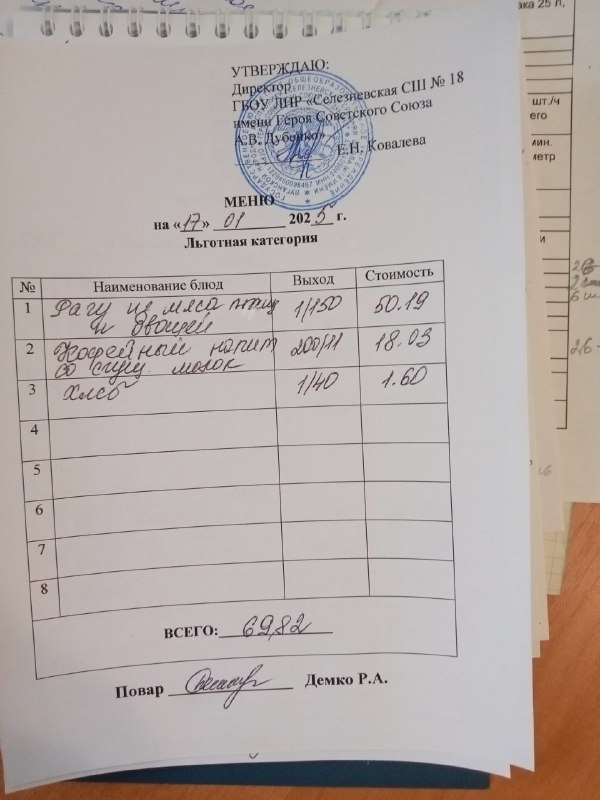 УТВЕРЖДАЮ:
Директор
ГБОУ ЛНР «Селезневская СШ № 18
имени Героя Советского Союза
А.В. Дубенко»
Е.Н. Ковалева
МЕНЮ
на «17» 01 2025 г.
Льготная категория
№ Наименование блюд Выход Стоимость
1 Рагу из мяса птиц 1/150 50.19
и овощей
2 Кофейный напит 200/11 18.03
со сгущ молок
3 Хлеб 1/40 1.60
4
5
6
7
8
ВСЕГО: 69,82
Повар Демко Р.А.
ака 25 л,
шт./ч
его
мин.
метр
и